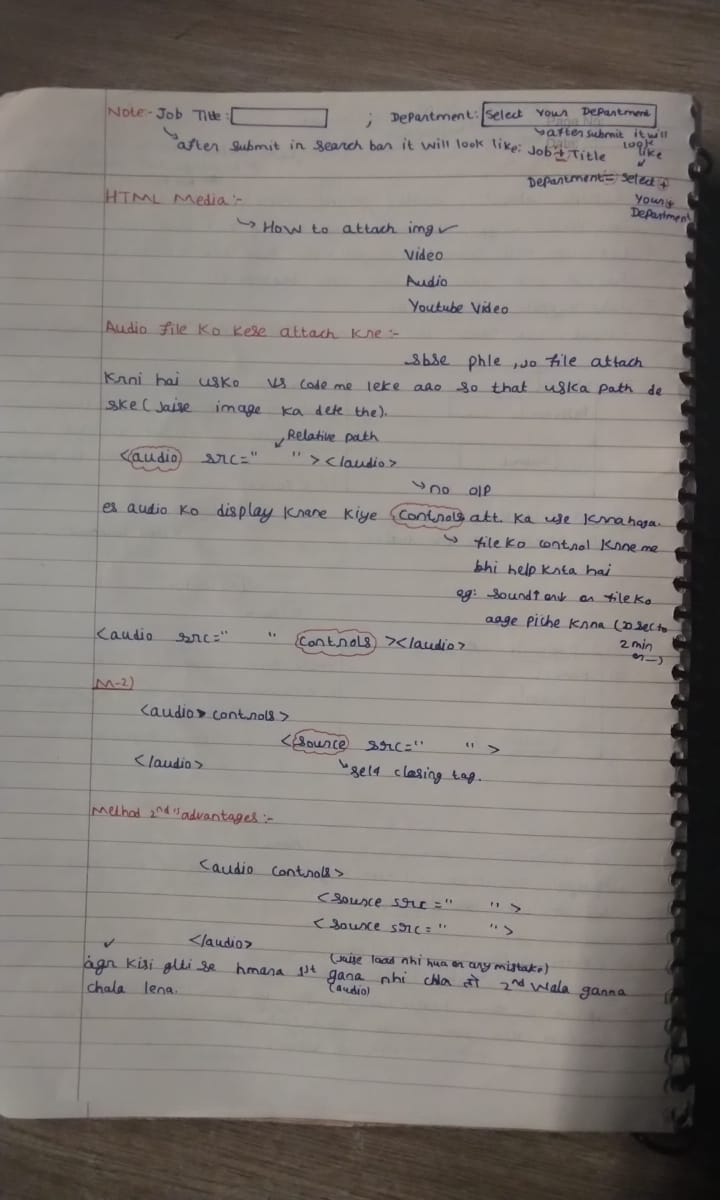 Note:- Job Title: ; Department: Select Your Department
↳after submit in search bar it will look like: Job+Title
↳after submit it will look like
Department= Select+
Your+
Department
HTML Media:-
↳ How to attach img✓
Video
Audio
Youtube Video
Audio file ko kese attach kre:-
sbse phle, jo file attach
krni hai usko VS code me leke aao so that uska path de
ske (jaise image ka dete the).
Relative path
<audio src=" "></audio>
↳ no O/P
es audio ko display krane kiye controls att. ka use krna hoga.
↳ file ko control krne me
bhi help krta hai
eg: sound or file ko
aage piche krna (20 sec to
2 min
<audio src=" " controls></audio>
M-2)
<audio> controls>
<source src=" ">
</audio>
↳self closing tag.
Method 2nd's advantages:-
<audio controls>
<source src=" ">
<source src=" ">
</audio>
✓
(jaise load nhi hua or any mistake)
agr kisi glti se hmara 1st gana nhi chla तो 2nd wala ganna
(audio)
chala lena.